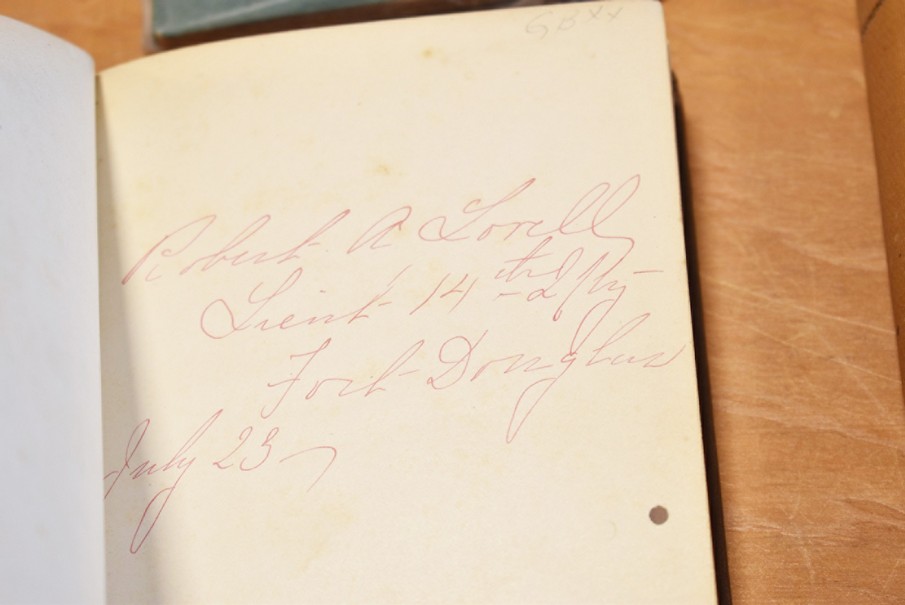 GBXX
Robert A Lovell
Lieut 14th
Fort Douglas
July 23